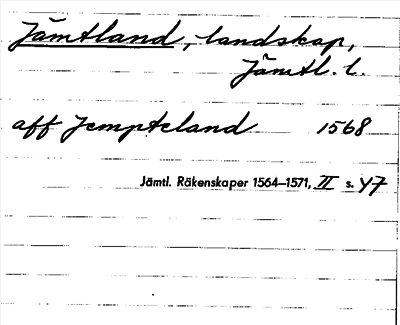 Jämtland, landskap,
Jämtl. l.
aff Jempteland 1568
Jämtl. Räkenskaper 1564–1571, II s. 47